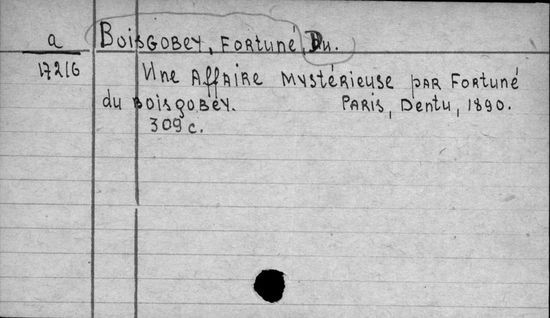 a Boisgobey, Fortuné, Du.
17216 Une Affaire mystérieuse par Fortuné
du Boisgobey. Paris, Dentu, 1890.
309 c.